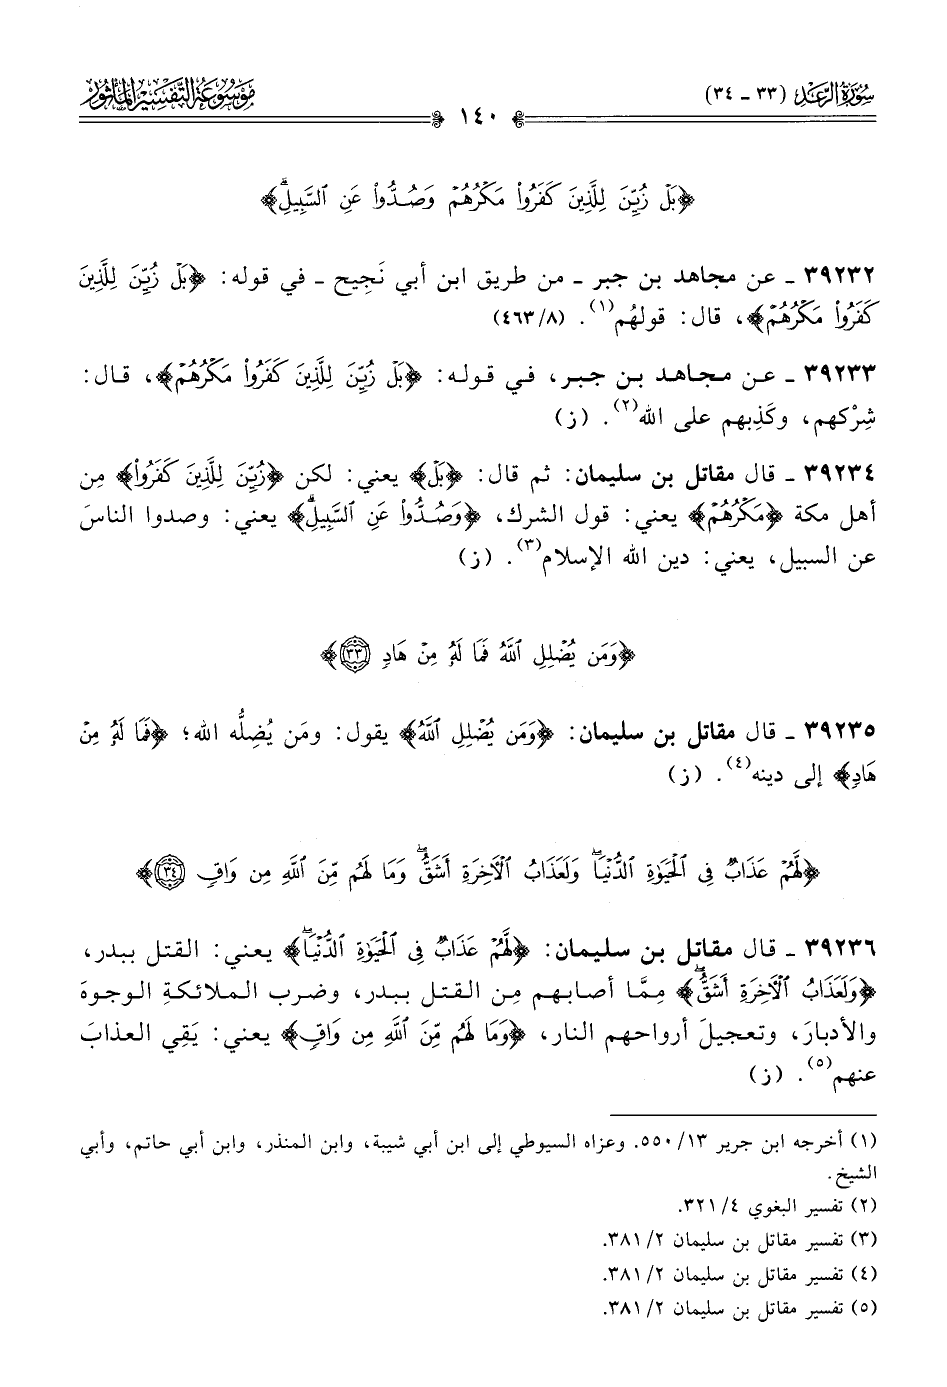 سورة الرعد (٣٣ - ٣٤)
موسوعة التفسير المأثور
١٤٠
﴿بَلْ زُيِّنَ لِلَّذِينَ كَفَرُوا۟ مَكْرُهُمْ وَصُدُّوا۟ عَنِ ٱلسَّبِيلِۗ﴾
٣٩٢٣٢ - عن مجاهد بن جبر - من طريق ابن أبي نَجِيح - في قوله: ﴿بَلْ زُيِّنَ لِلَّذِينَ
كَفَرُوا۟ مَكْرُهُمْ﴾، قال: قولهُم(١). (٤٦٣/٨)
٣٩٢٣٣ - عن مجاهد بن جبر، في قوله: ﴿بَلْ زُيِّنَ لِلَّذِينَ كَفَرُوا۟ مَكْرُهُمْ﴾، قال:
شِرْكهم، وكَذِبهم على الله(٢). (ز)
٣٩٢٣٤ - قال مقاتل بن سليمان: ثم قال: ﴿بَلْ﴾ يعني: لكن ﴿زُيِّنَ لِلَّذِينَ كَفَرُوا۟﴾ مِن
أهل مكة ﴿مَكْرُهُمْ﴾ يعني: قول الشرك، ﴿وَصُدُّوا۟ عَنِ ٱلسَّبِيلِۗ﴾ يعني: وصدوا الناسَ
عن السبيل، يعني: دين الله الإسلام(٣). (ز)
﴿وَمَن يُضْلِلِ ٱللَّهُ فَمَا لَهُۥ مِنْ هَادٍ ٣٣﴾
٣٩٢٣٥ - قال مقاتل بن سليمان: ﴿وَمَن يُضْلِلِ ٱللَّهُ﴾ يقول: ومَن يُضِلُّه الله؛ ﴿فَمَا لَهُۥ مِنْ
هَادٍ﴾ إلى دينه(٤). (ز)
﴿لَّهُمْ عَذَابٌ فِى ٱلْحَيَوٰةِ ٱلدُّنْيَاۖ وَلَعَذَابُ ٱلْءَاخِرَةِ أَشَقُّۖ وَمَا لَهُم مِّنَ ٱللَّهِ مِن وَاقٍ ٣٤﴾
٣٩٢٣٦ - قال مقاتل بن سليمان: ﴿لَّهُمْ عَذَابٌ فِى ٱلْحَيَوٰةِ ٱلدُّنْيَاۖ﴾ يعني: القتل ببدر،
﴿وَلَعَذَابُ ٱلْءَاخِرَةِ أَشَقُّۖ﴾ مِمَّا أصابهم مِن القتل ببدر، وضرب الملائكةِ الوجوهَ
والأدبارَ، وتعجيلَ أرواحهم النار، ﴿وَمَا لَهُم مِّنَ ٱللَّهِ مِن وَاقٍ﴾ يعني: يَقِي العذابَ
عنهم(٥). (ز)
(١) أخرجه ابن جرير ١٣/ ٥٥٠. وعزاه السيوطي إلى ابن أبي شيبة، وابن المنذر، وابن أبي حاتم، وأبي
الشيخ.
(٢) تفسير البغوي ٤/ ٣٢١.
(٣) تفسير مقاتل بن سليمان ٢/ ٣٨١.
(٤) تفسير مقاتل بن سليمان ٢/ ٣٨١.
(٥) تفسير مقاتل بن سليمان ٢/ ٣٨١.